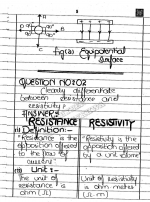 Fig (a) Equipotential
Surface
QUESTION NO: 02
Clearly differentiate
between resistance and
resistivity?
ANSWER:
RESISTANCE RESISTIVITY
(i) Definition:-
"Resistance is the opposition offered to the flow of current"
"Resistivity is the opposition offered by a unit
(ii) Unit:-
The unit of resistance is ohm (Ω)
Unit of resistivity is ohm meter (Ω.m)